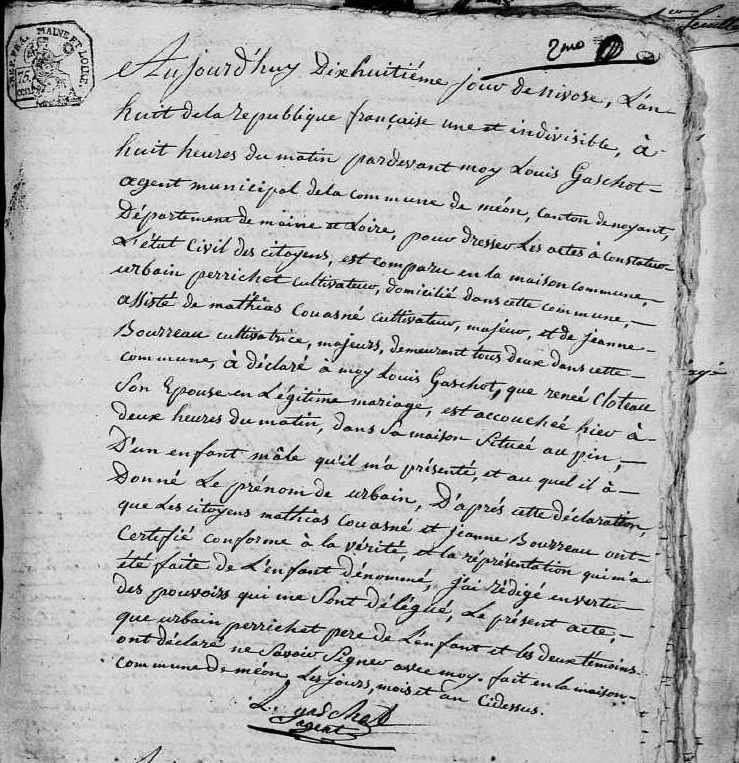 1re feuille
2me
REP. FRA. MAINE ET LOIRE
75
Aujourd'huy Dixhuitiéme jour de nivose, L'an
huit de la republique française une et indivisible, à
huit heures du matin pardevant moy Louis Gaschot
agent municipal de la commune de méon, canton de noyant,
Département de maine et Loire, pour dresser Les actes à constater
L'état Civil des citoyens, est comparu en la maison commune,
urbain perrichet cultivateur, domicilié dans cette commune,
assisté de mathias Couasné cultivateur, majeur, et de jeanne
Bourreau cultivatrice, majeurs, demeurant tous deux dans cette
commune, à déclaré à moy Louis Gaschot, que reneé Cloteau
Son Epouse en Légitime mariage, est accoucheé hier à
deux heures du matin, dans Sa maison Situeé au pin,
D'un enfant mâle qu'il m'a présenté, et au quel il à
Donné Le prénom de urbain, D'aprés cette déclaration,
que Les citoyens mathias Couasné et jeanne Bourreau ont
Certifié conforme à la vérité, et la réprésentation qui m'a
été faite de L'enfant dénommé, j'ai rédigé en vertu
des pouvoirs qui me Sont délégué, Le présent acte,
que urbain perrichet pere de L'enfant et les deux témoins
ont déclaré ne Savoir Signer avec moy. fait en la maison
commune de méon Les jours, mois et an Cidessus.
L. gaschot
agent